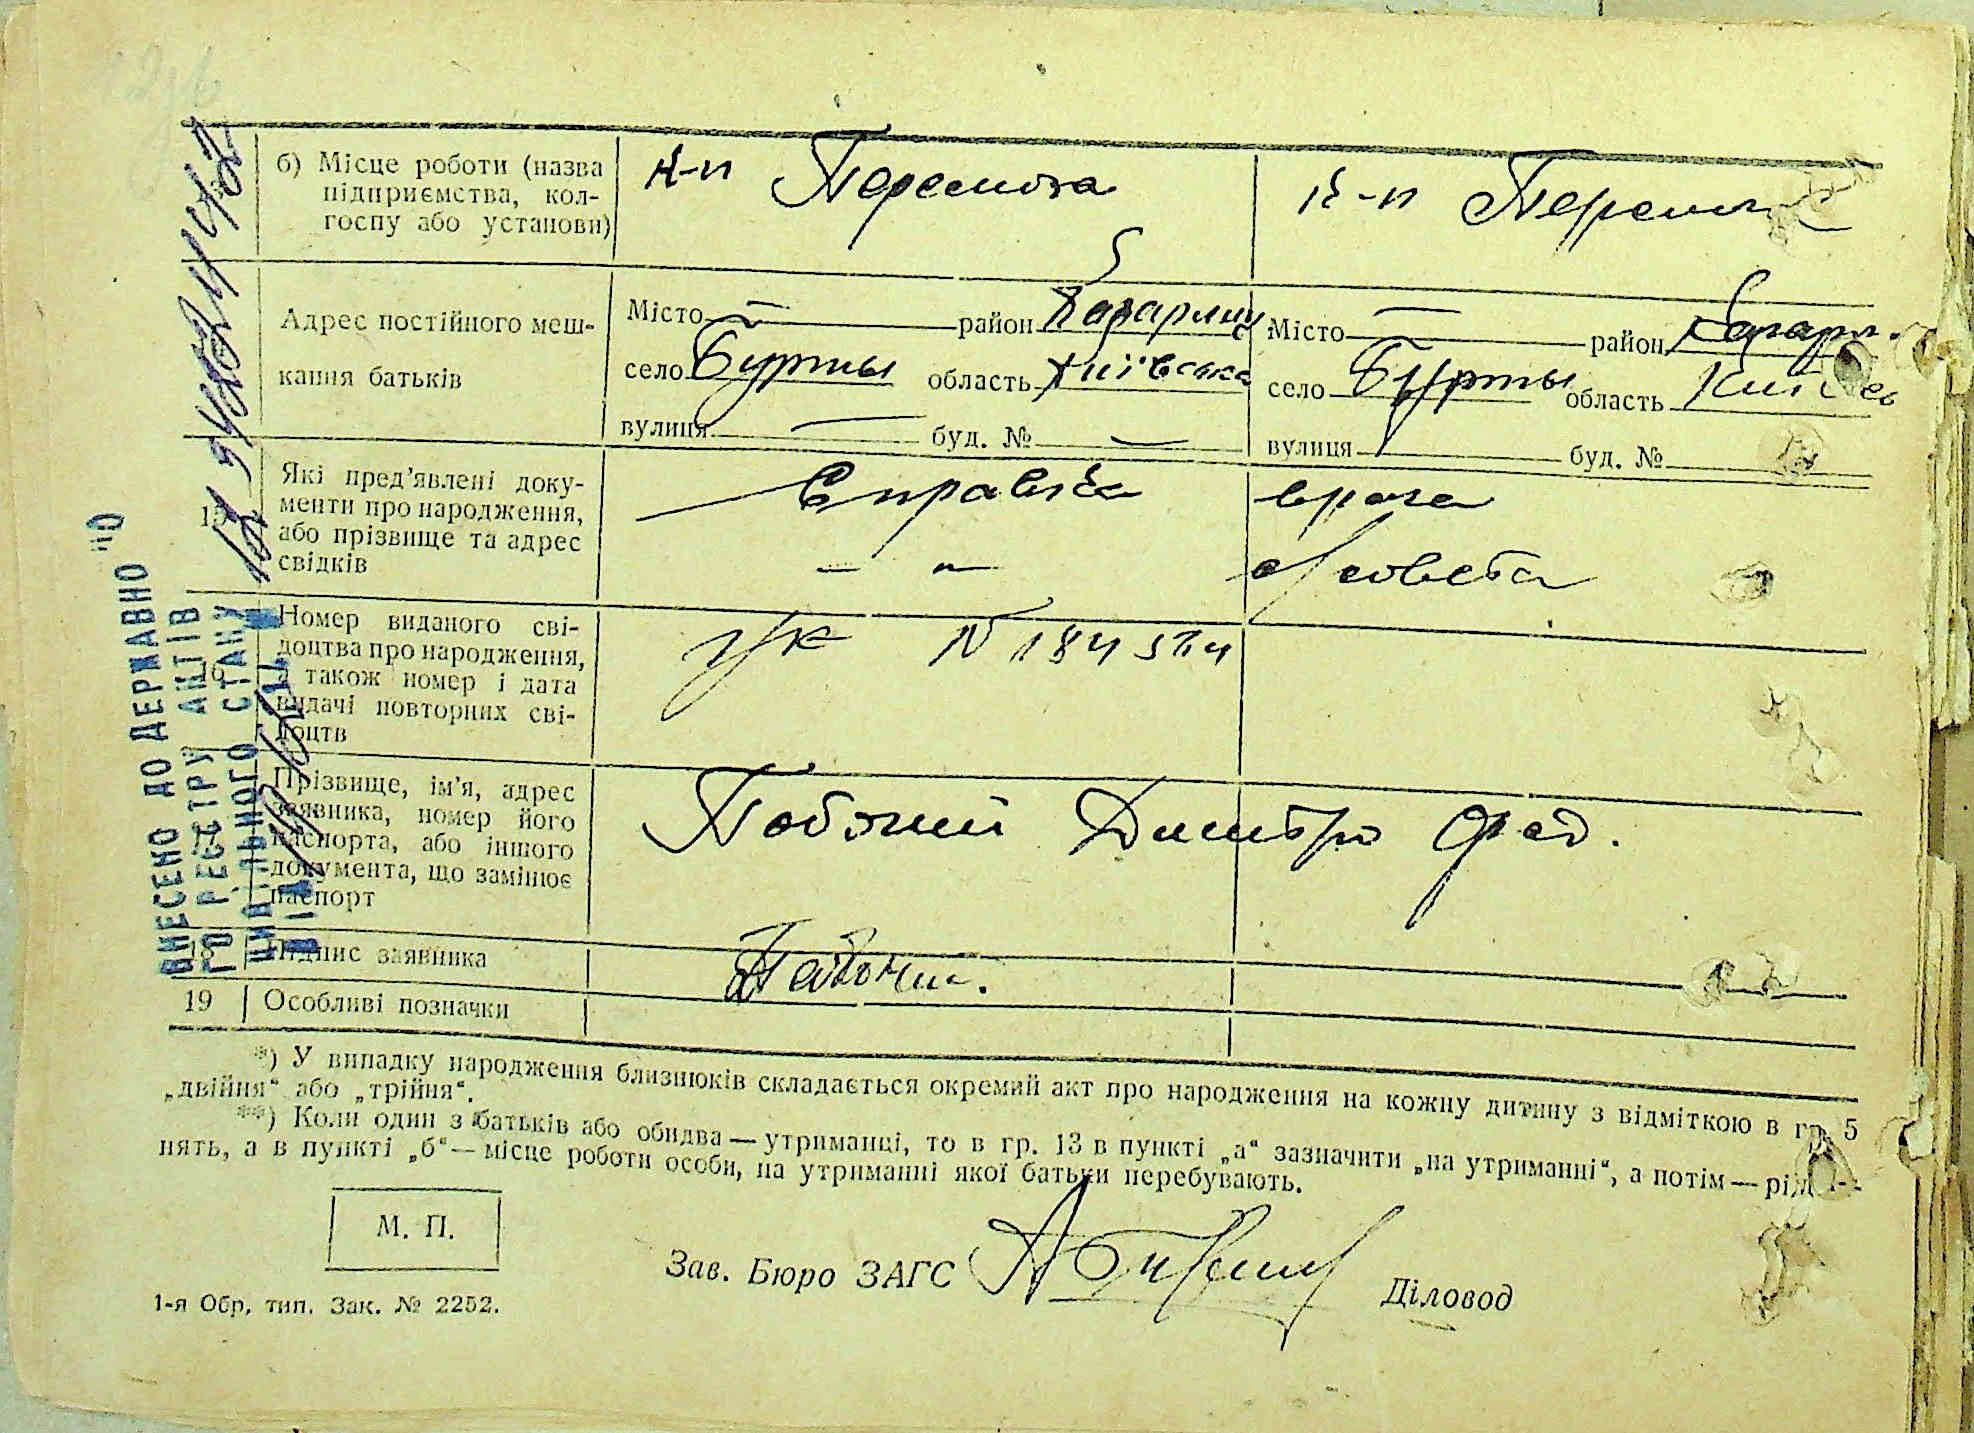 б) Місце роботи (назва
підприємства, кол-
госпу або установи)
к-п Перемога
к-п
Адрес постійного меш-
кання батьків
Місто — район Кагарлиц.
село Бурты область Київська
вулиця — буд. № —
Місто — район Кагарл.
село Бурты область
вулиця буд. №
15
Які пред'явлені доку-
менти про народження,
або прізвище та адрес
свідків
Справка врача
— „ — с/совета
Номер виданого сві-
доцтва про народження,
а також номер і дата
видачі повторних сві-
доцтв
УК N
Прізвище, ім'я, адрес
заявника, номер його
паспорта, або іншого
документа, що замінює
паспорт
Дмитро
18
Підпис заявника
19 Особливі позначки
ВНЕСЕНО ДО ДЕРЖАВНО
ГО РЕЄСТРУ АКТІВ
ЦИВІЛЬНОГО СТАНУ
*) У випадку народження близнюків складається окремий акт про народження на кожну дитину з відміткою в гр. 5
„двійня“ або „трійня“.
**) Коли один з батьків або обидва — утриманці, то в гр. 13 в пункті „а“ зазначити „на утриманні“, а потім —
нять, а в пункті „б“ — місце роботи особи, на утриманні якої батьки перебувають.
М. П.
Зав. Бюро ЗАГС
Діловод
1-я Обр, тип. Зак. № 2252.